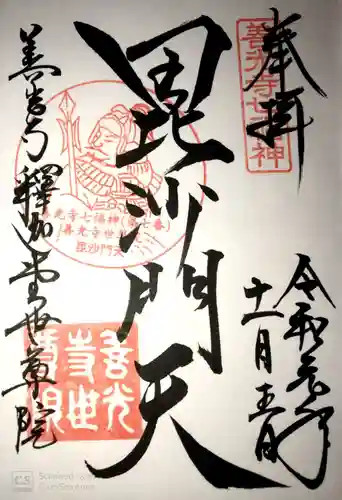 奉拝
善光寺七福神
令和元年
十一月五日
毘沙門天
善光寺七福神(第七番)
善光寺世尊院
毘沙門天
善光寺 釋迦堂世尊院
善光寺世尊院
CS
Scanned with
CamScanner